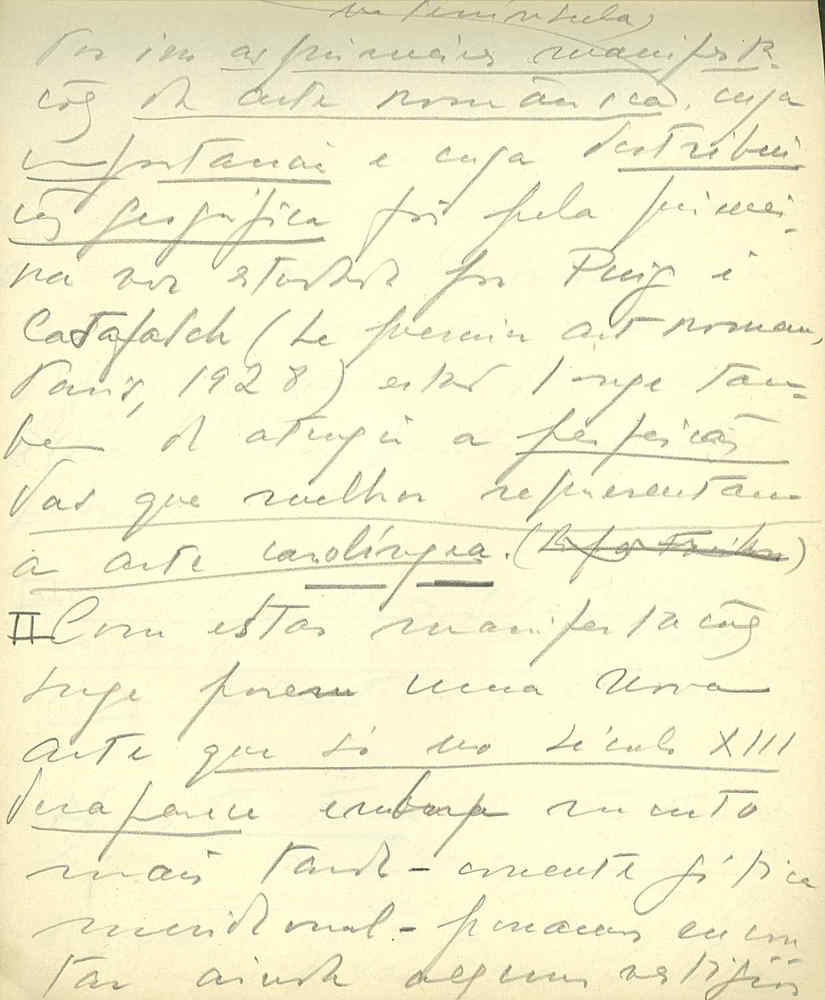 na península
Por isso as primeiras manifesta-
ções de arte românica, cuja
importancia e cuja distribui
ção geográfica foi pela primei-
ra vez estudada por Puig i
Cadafalch (Le premier art roman,
Paris, 1928) estão longe tam-
bem de atingir a perfeição
das que melhor representam
a arte carolíngea. ( )
II Com estas manifestações
surge porem uma nova
arte que só no século XIII
desaparece embora muito
mais tarde - corrente gótica
meridional - possamos encon
trar ainda alguns vestígios